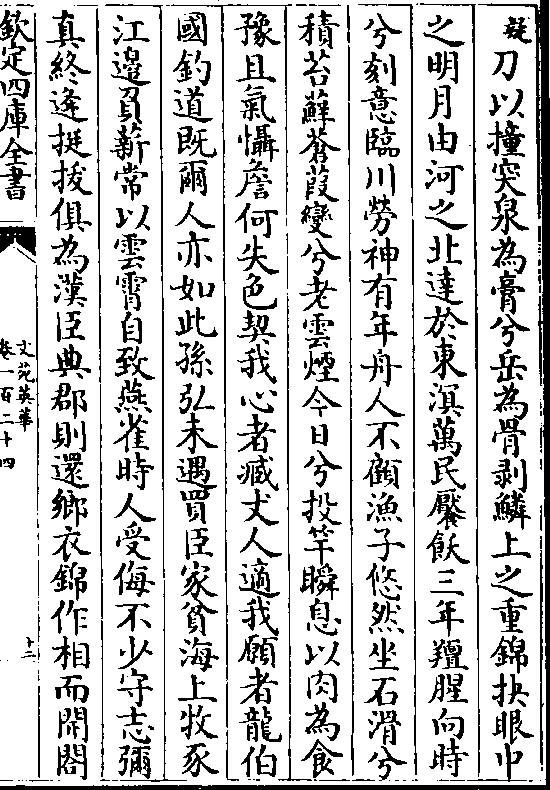 疑刀以撞突泉為膏兮岳為骨剥鱗上之重錦抉眼中
之明月由河之北達於東溟萬民饜飫三年羶腥向時
兮刻意臨川勞神有年舟人不顧漁子悠然坐石滑兮
積苔蘚蒼葭變兮老雲煙今日兮投竿瞬息以肉為食
豫且氣懾詹何失色契我心者臧丈人適我願者龍伯
國釣道既爾人亦如此孫弘未遇買臣家貧海上牧豕
江邊負薪常以雲霄自致燕雀時人受侮不少守志彌
真終逢挺拔俱為漢臣典郡則還鄉衣錦作相而開閤
欽定四庫全書
文苑英華
卷一百二十四
十二